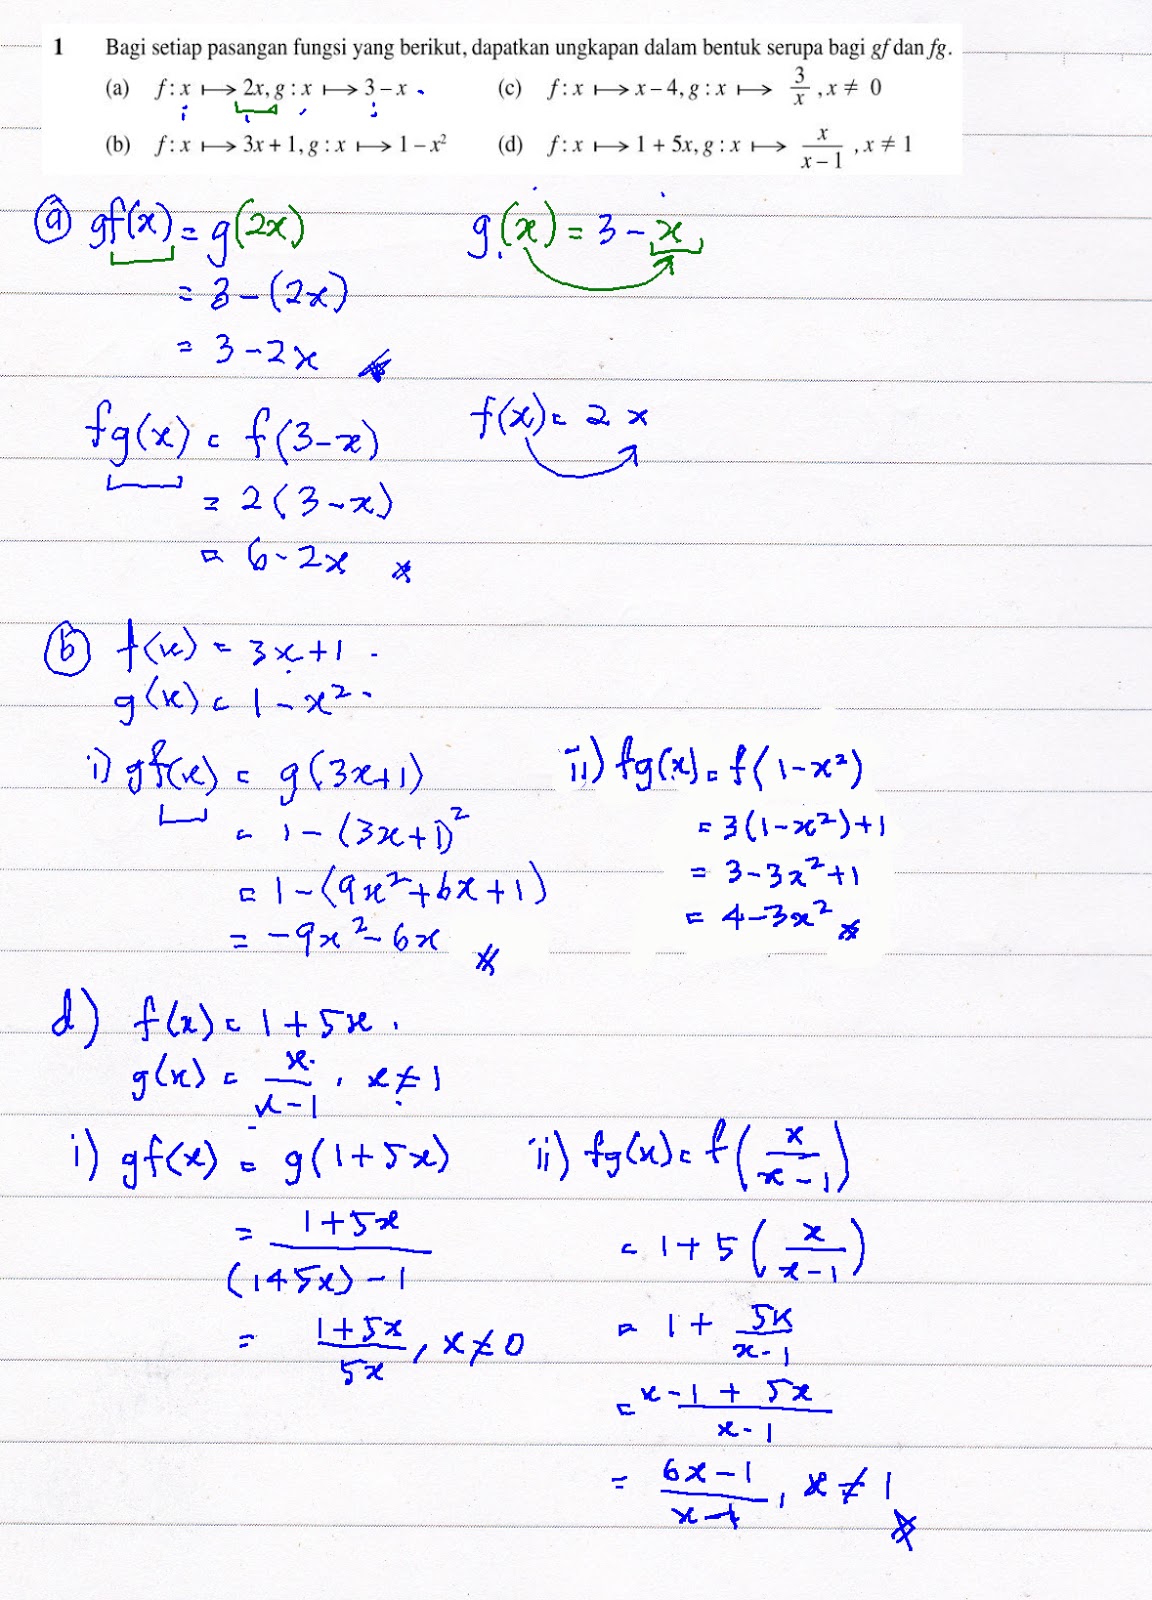 1 Bagi setiap pasangan fungsi yang berikut, dapatkan ungkapan dalam bentuk serupa bagi gf dan fg.
(a) f : x ⟼ 2x, g : x ⟼ 3 – x
(c) f : x ⟼ x – 4, g : x ⟼ 3/x , x ≠ 0
(b) f : x ⟼ 3x + 1, g : x ⟼ 1 – x²
(d) f : x ⟼ 1 + 5x, g : x ⟼ x/(x – 1) , x ≠ 1
ⓐ gf(x) = g(2x)
= 3 – (2x)
= 3 – 2x
g(x) = 3 – x
fg(x) = f(3 – x)
= 2(3 – x)
= 6 – 2x
f(x) = 2x
ⓑ f(x) = 3x + 1
g(x) = 1 – x²
i) gf(x) = g(3x+1)
= 1 – (3x+1)²
= 1 – (9x² + 6x + 1)
= –9x² – 6x
ii) fg(x) = f(1 – x²)
= 3(1 – x²) + 1
= 3 – 3x² + 1
= 4 – 3x²
d) f(x) = 1 + 5x
g(x) = x/(x – 1) , x ≠ 1
i) gf(x) = g(1 + 5x)
= (1 + 5x)/((1+5x) – 1)
= (1 + 5x)/5x , x ≠ 0
ii) fg(x) = f(x/(x – 1))
= 1 + 5(x/(x – 1))
= 1 + 5x/(x – 1)
= (x – 1 + 5x)/(x – 1)
= (6x – 1)/(x – 1) , x ≠ 1